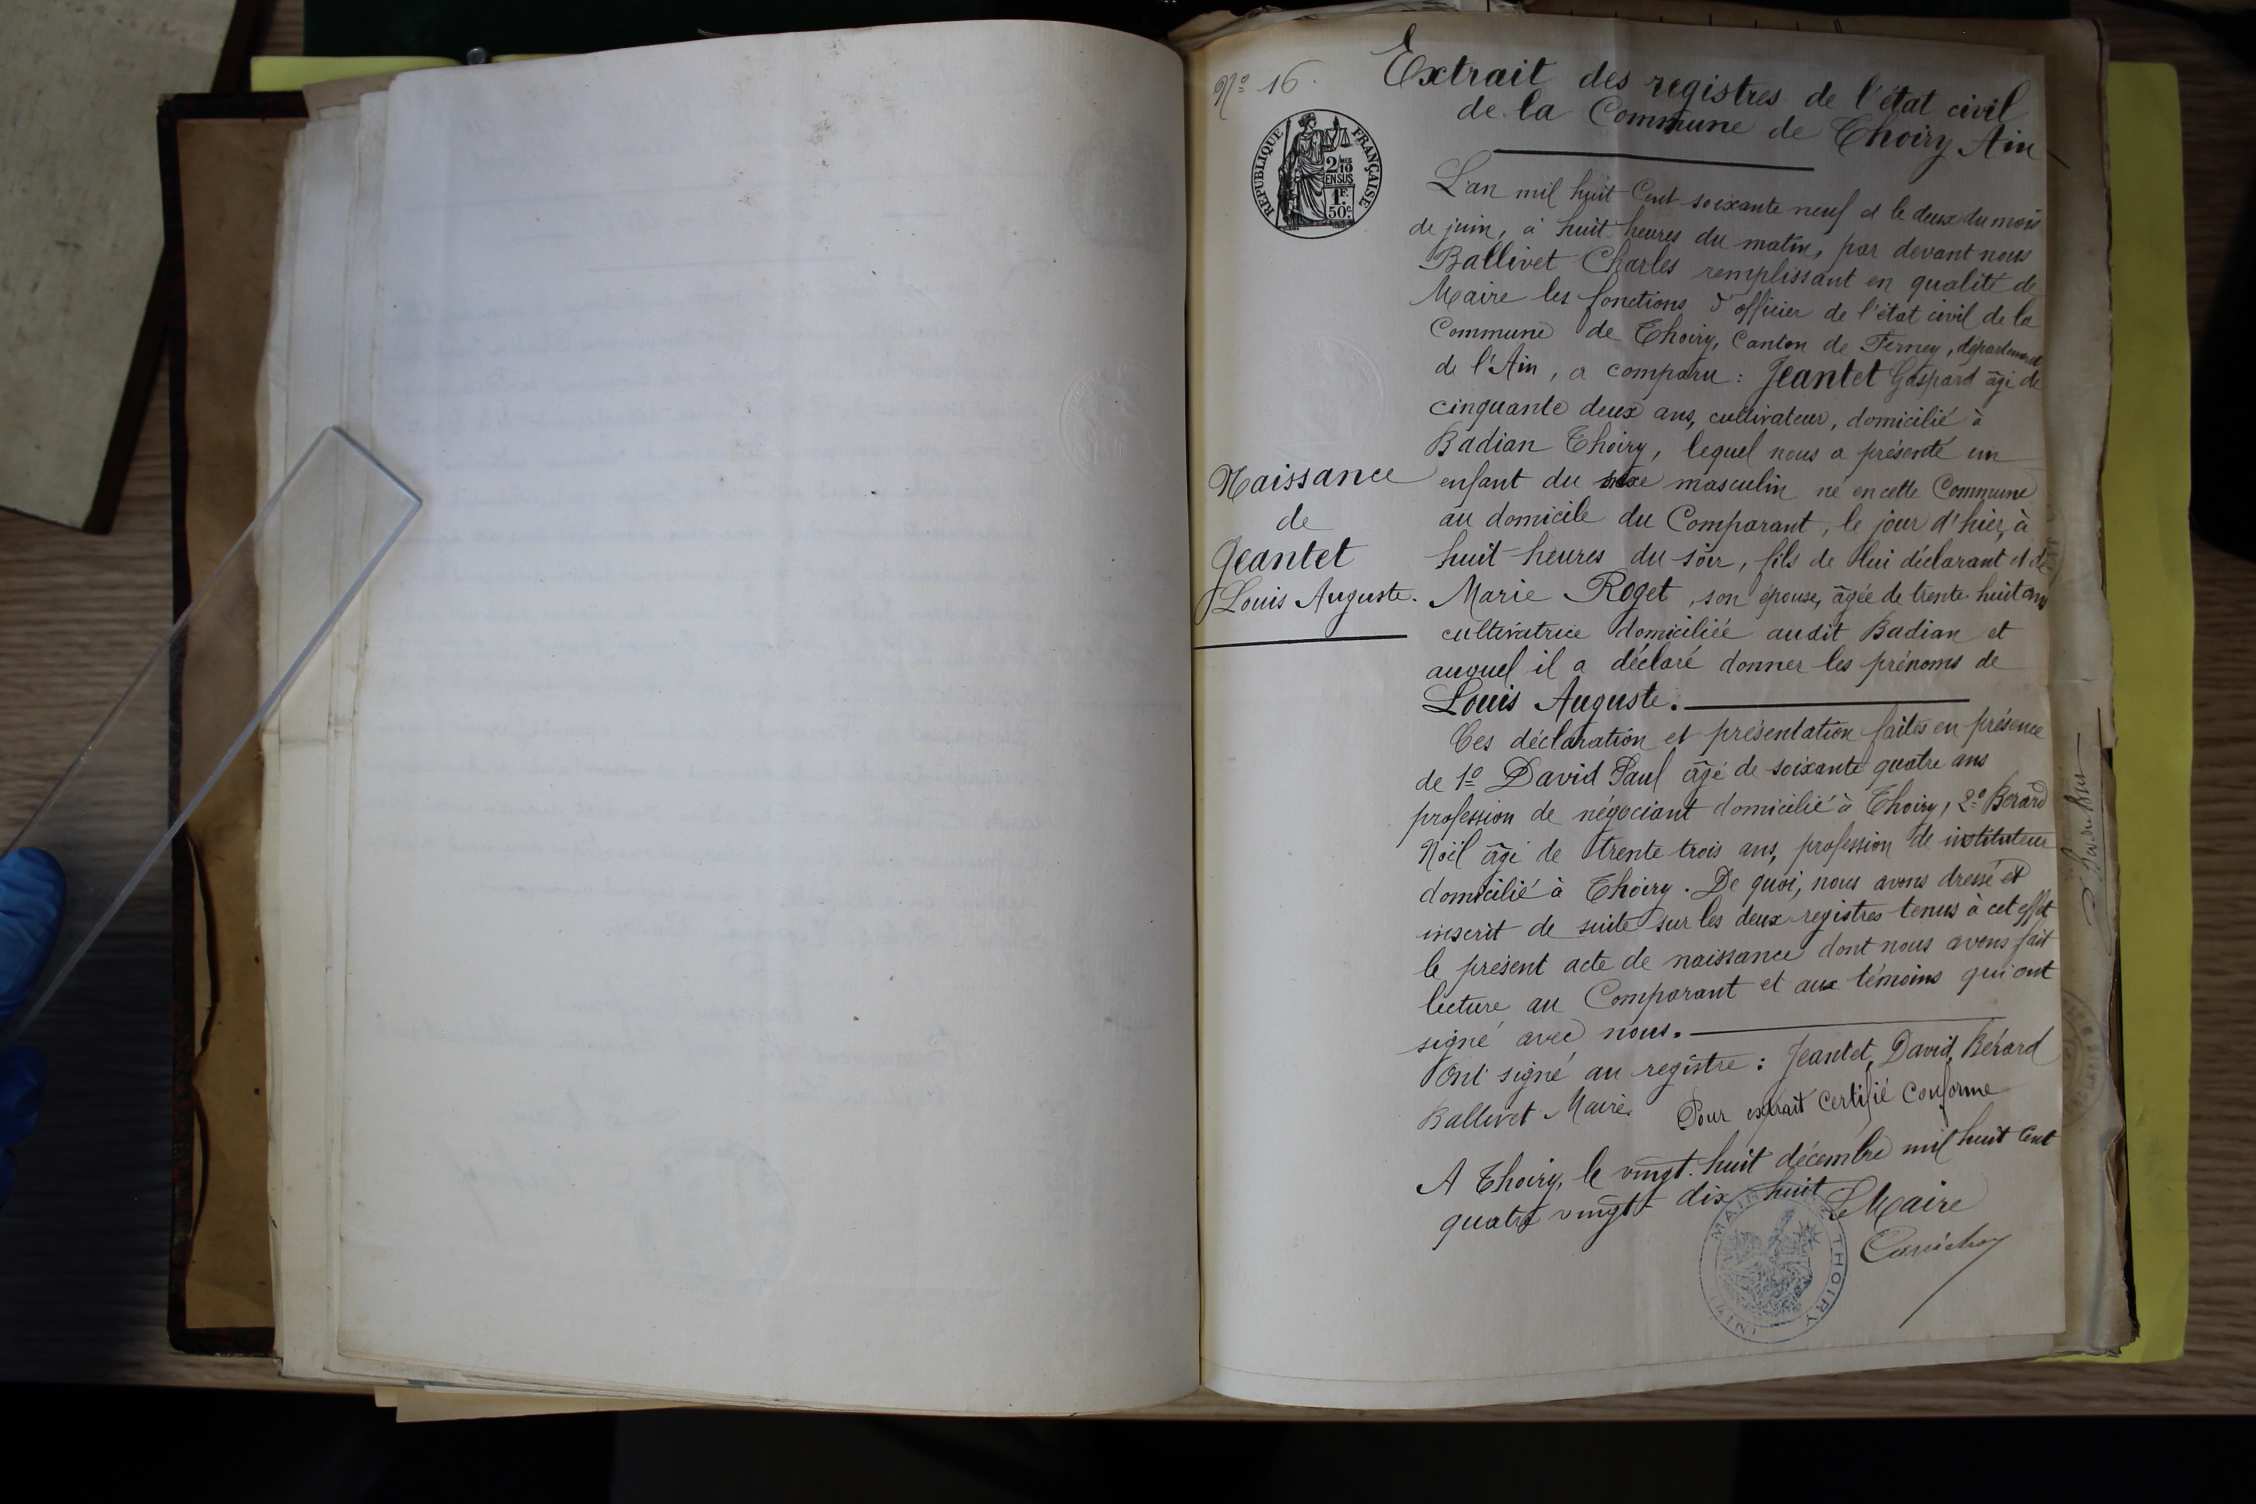 Nº 16.
Extrait des registres de l'état civil
de la Commune de Thoiry Ain
RÉPUBLIQUE FRANÇAISE
2/10
EN SUS
1F.
50c
L'an mil huit Cent soixante neuf et le deux du mois
de juin, à huit heures du matin, par devant nous
Ballivet Charles remplissant en qualité de
Maire les fonctions d'officier de l'état civil de la
Commune de Thoiry, Canton de Ferney, département
de l'Ain, a comparu : Jeantet Gaspard âgé de
cinquante deux ans, cultivateur, domicilié à
Badian Thoiry, lequel nous a présenté un
enfant du sexe masculin né en cette Commune
au domicile du Comparant, le jour d'hier, à
huit heures du soir, fils de lui déclarant et de
Marie Roget, son épouse, âgée de trente huit ans
cultivatrice domiciliée audit Badian et
auquel il a déclaré donner les prénoms de
Louis Auguste.
Naissance
de
Jeantet
Louis Auguste.
Ces déclaration et présentation faites en présence
de 1º David Paul âgé de soixante quatre ans
profession de négociant domicilié à Thoiry, 2º Bérard
Noël âgé de trente trois ans, profession de instituteur
domicilié à Thoiry. De quoi, nous avons dressé et
inscrit de suite sur les deux registres tenus à cet effet
le présent acte de naissance dont nous avons fait
lecture au Comparant et aux témoins qui ont
signé avec nous.
Ont signé au registre : Jeantet, David, Bérard
Ballivet Maire. Pour extrait Certifié Conforme
A Thoiry, le vingt huit décembre mil huit Cent
quatre vingt dix huit Le Maire
MAIRIE DE THOIRY
(AIN)